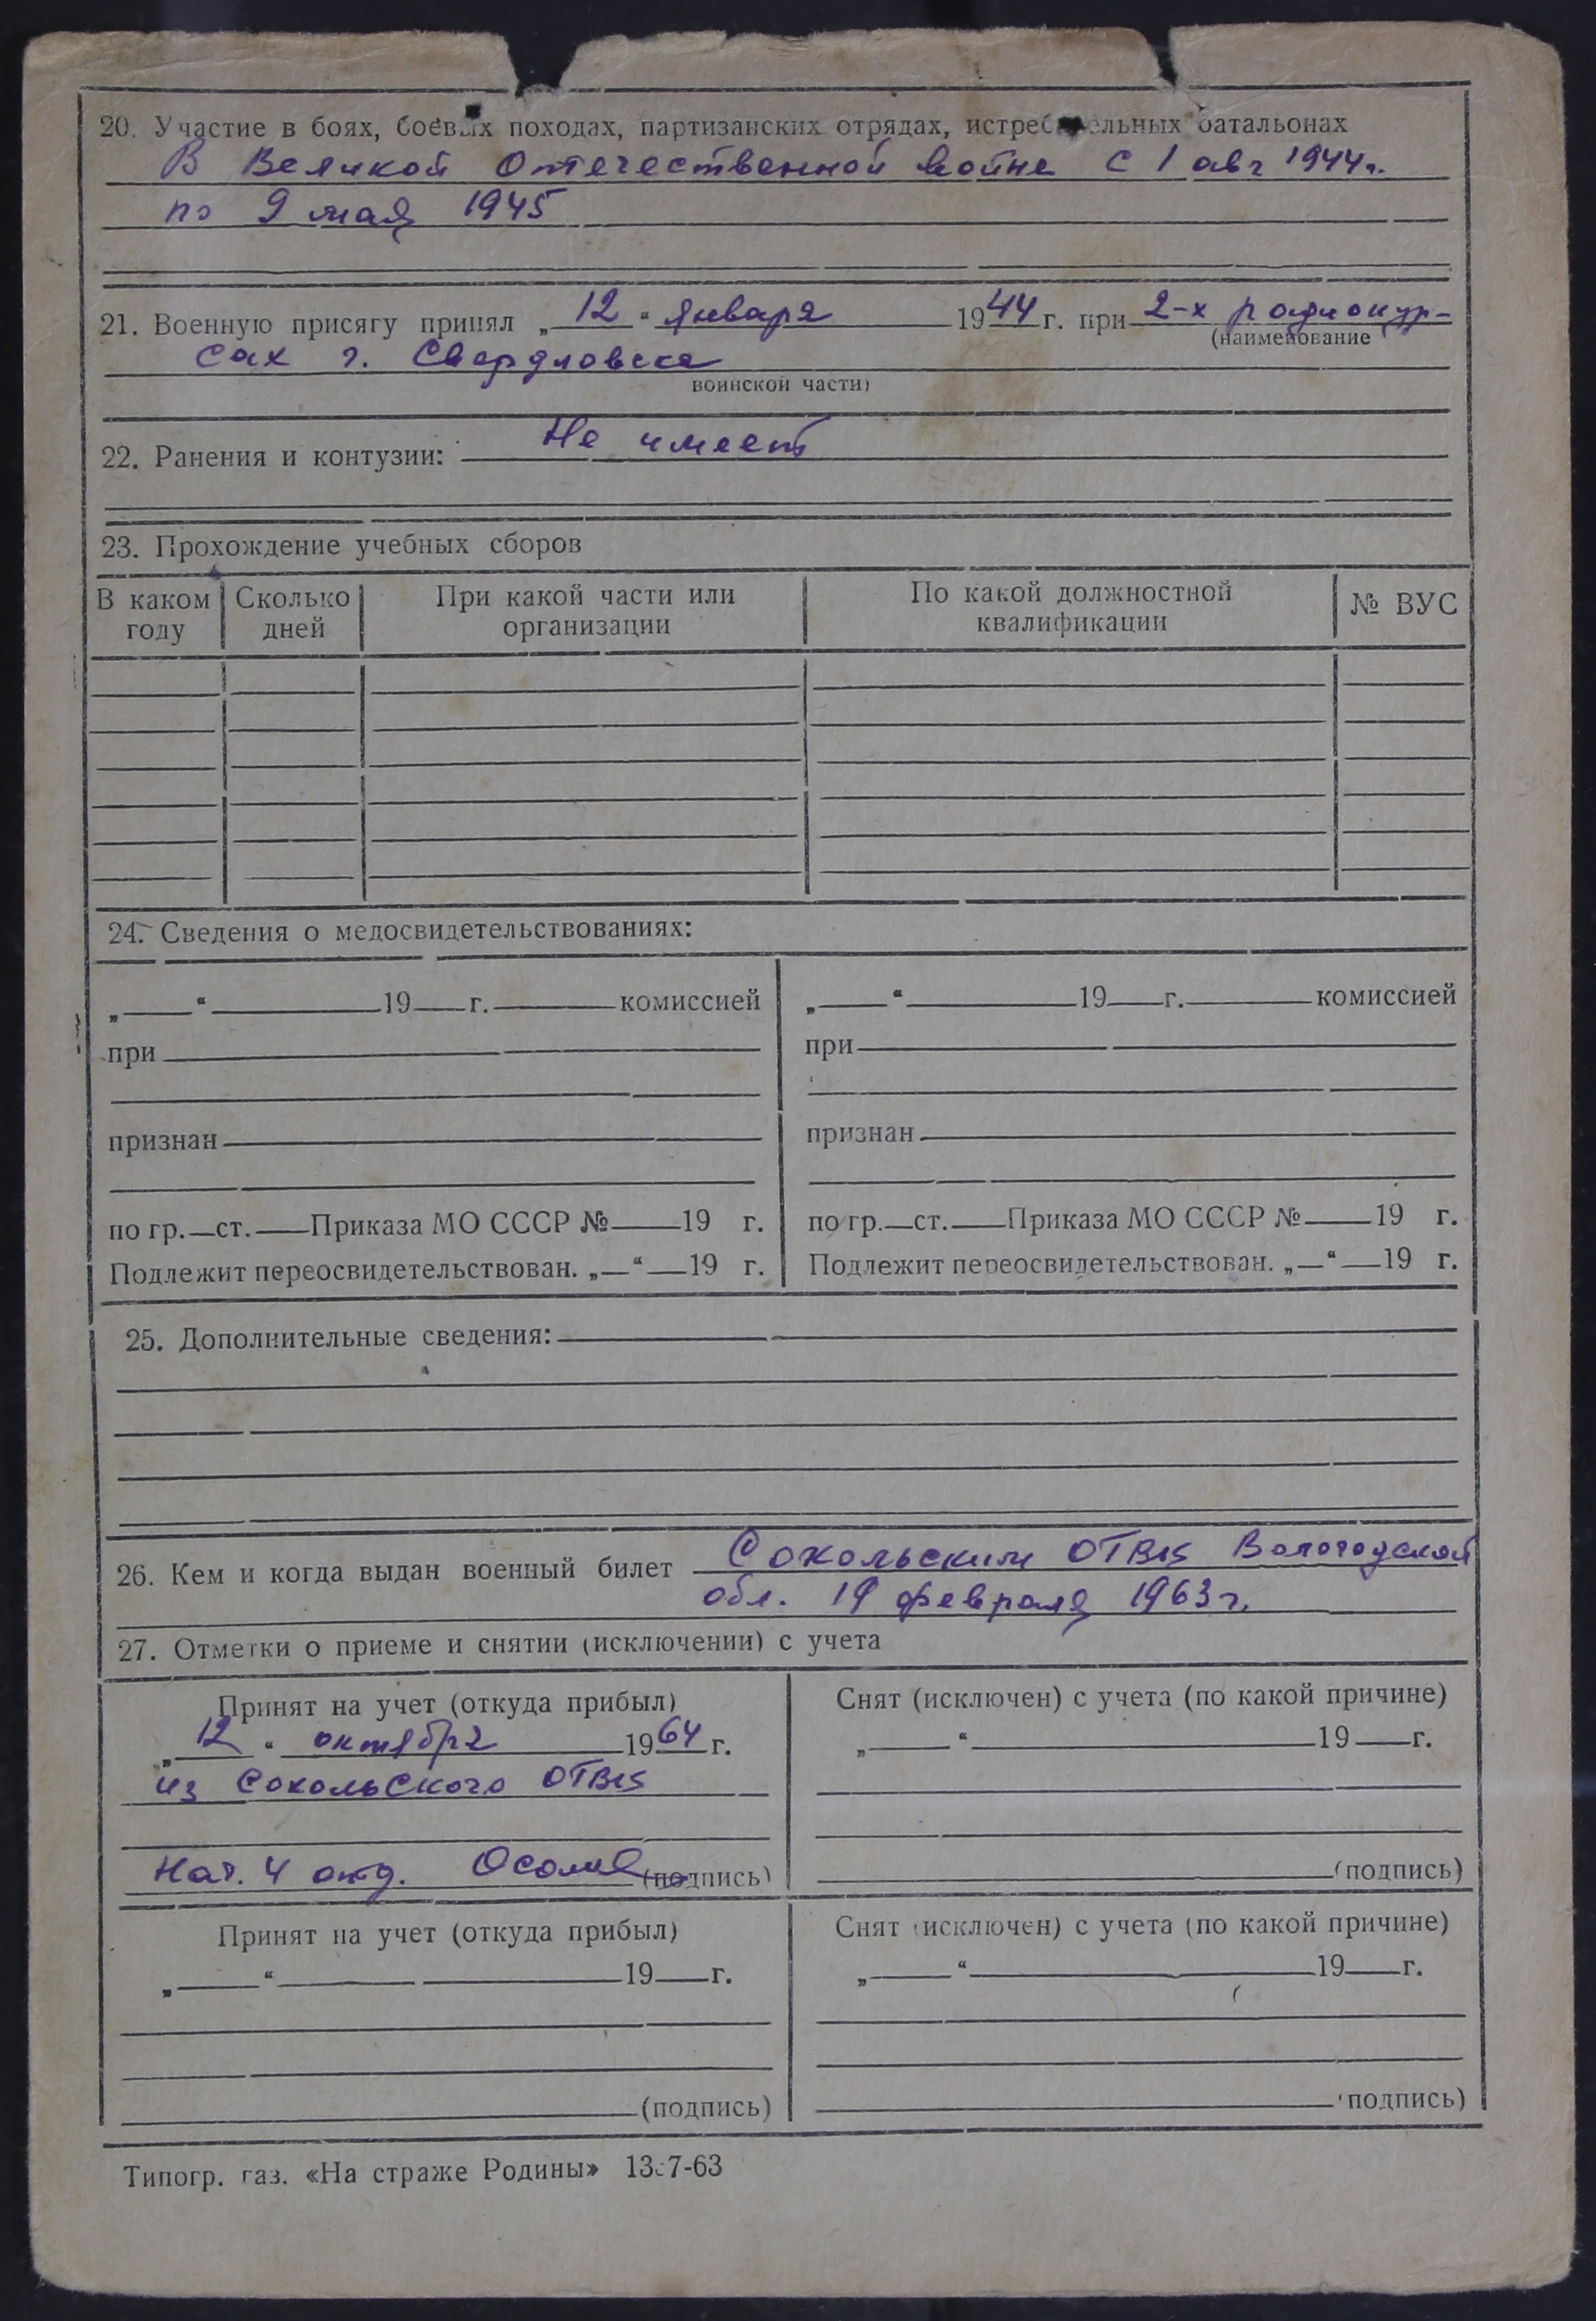 20. Участие в боях, боевых походах, партизанских отрядах, истребительных батальонах
В Великой Отечественной войне с 1 авг 1944г.
по 9 мая 1945
21. Военную присягу принял „12“ января 1944 г. при 2-х радиокур-
(наименование
сах г. Свердловска
воинской части)
22. Ранения и контузии: Не имеет
23. Прохождение учебных сборов
В каком году
Сколько дней
При какой части или организации
По какой должностной квалификации
№ ВУС
24. Сведения о медосвидетельствованиях:
„ “ 19 г. комиссией
при
признан
по гр. ст. Приказа МО СССР № 19 г.
Подлежит переосвидетельствован. „ “ 19 г.
„ “ 19 г. комиссией
при
признан
по гр. ст. Приказа МО СССР № 19 г.
Подлежит переосвидетельствован. „ “ 19 г.
25. Дополнительные сведения:
26. Кем и когда выдан военный билет Сокольским ОТВК Вологодской
обл. 19 февраля 1963г.
27. Отметки о приеме и снятии (исключении) с учета
Принят на учет (откуда прибыл)
„12“ октября 1964 г.
из Сокольского ОТВК
Нач. 4 отд. (подпись)
Снят (исключен) с учета (по какой причине)
„ “ 19 г.
(подпись)
Принят на учет (откуда прибыл)
„ “ 19 г.
(подпись)
Снят (исключен) с учета (по какой причине)
„ “ 19 г.
(подпись)
Типогр. газ. «На страже Родины»